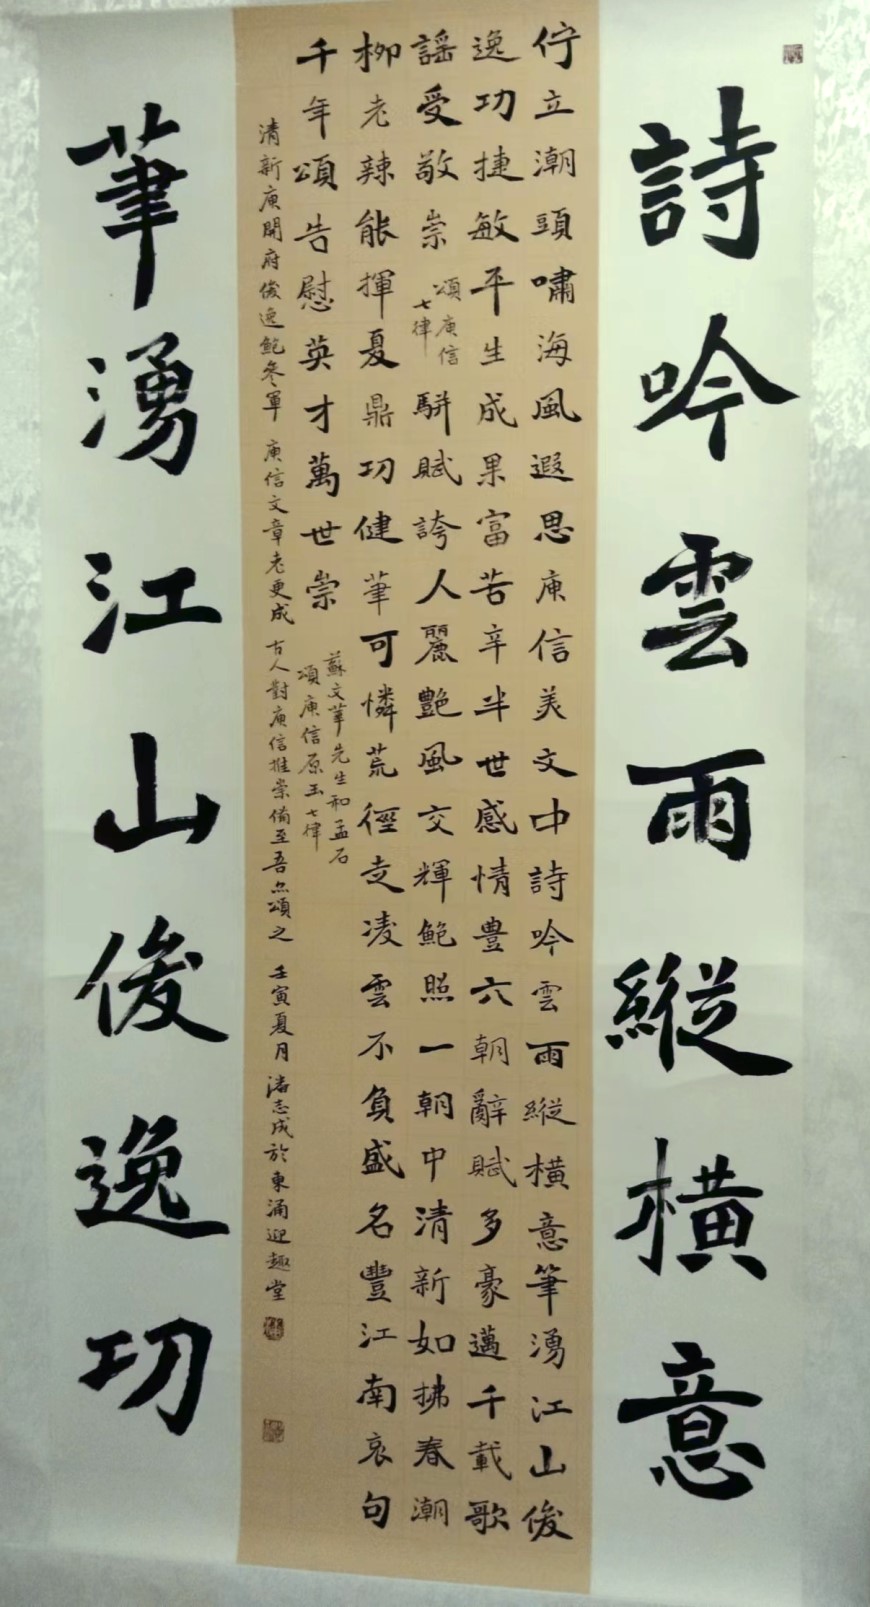 詩吟雲雨縱橫意
佇立潮頭嘯海風遐思庾信美文中詩吟雲雨縱橫意筆湧江山俊
逸功捷敏平生成果富苦辛半世感情豊六朝辭賦多豪邁千載歌
謠受敬崇
頌庾信
七律
駢賦誇人麗艷風交輝鮑照一朝中清新如拂春潮
柳老辣能揮夏鼎功健筆可憐荒徑走凌雲不負盛名豐江南哀句
千年頌告慰英才萬世崇
蘇文華先生和孟石
頌庾信原玉七律
清新庾開府俊逸鮑參軍 庾信文章老更成 古人對庾信推崇備至吾亦頌之 壬寅夏月 潘志成於東涌迎趣堂
筆湧江山俊逸功